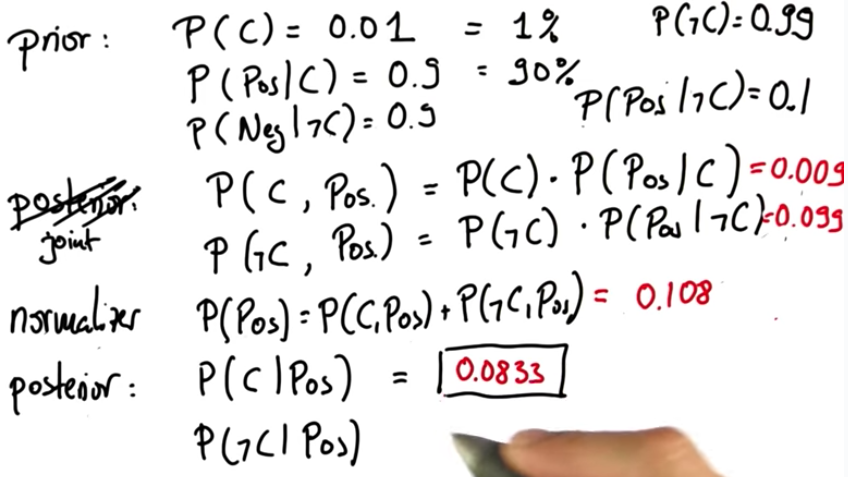 prior: P(C) = 0.01 = 1% P(¬C)=0.99
P(Pos|C) = 0.9 = 90% P(Pos|¬C)=0.1
P(Neg|¬C)=0.9
posterior: P(C, Pos.) = P(C)·P(Pos|C)=0.009
joint P(¬C, Pos.) = P(¬C)·P(Pos|¬C)=0.099
normalizer P(Pos)=P(C,Pos)+P(¬C,Pos)= 0.108
posterior: P(C|Pos) = 0.0833
P(¬C|Pos)